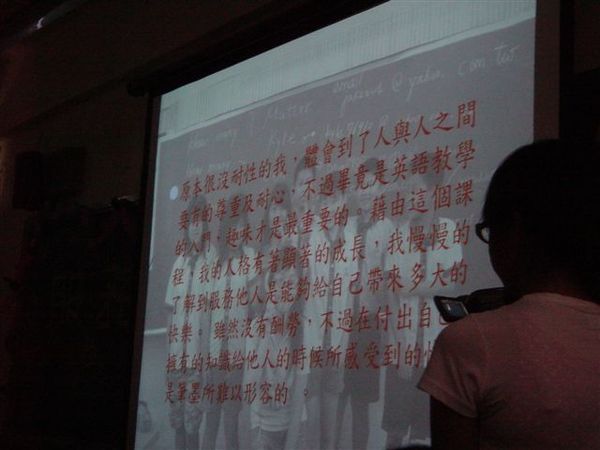 email
@yahoo.com.tw
原本很沒耐性的我，體會到了人與人之間
要有的尊重及耐心，不過畢竟是英語教學
的入門，趣味才是最重要的。藉由這個課
程，我的人格有著顯著的成長，我慢慢的
了解到服務他人是能夠給自己帶來多大的
快樂。雖然沒有酬勞，不過在付出自己
擁有的知識給他人的時候所感受到的
是筆墨所難以形容的。